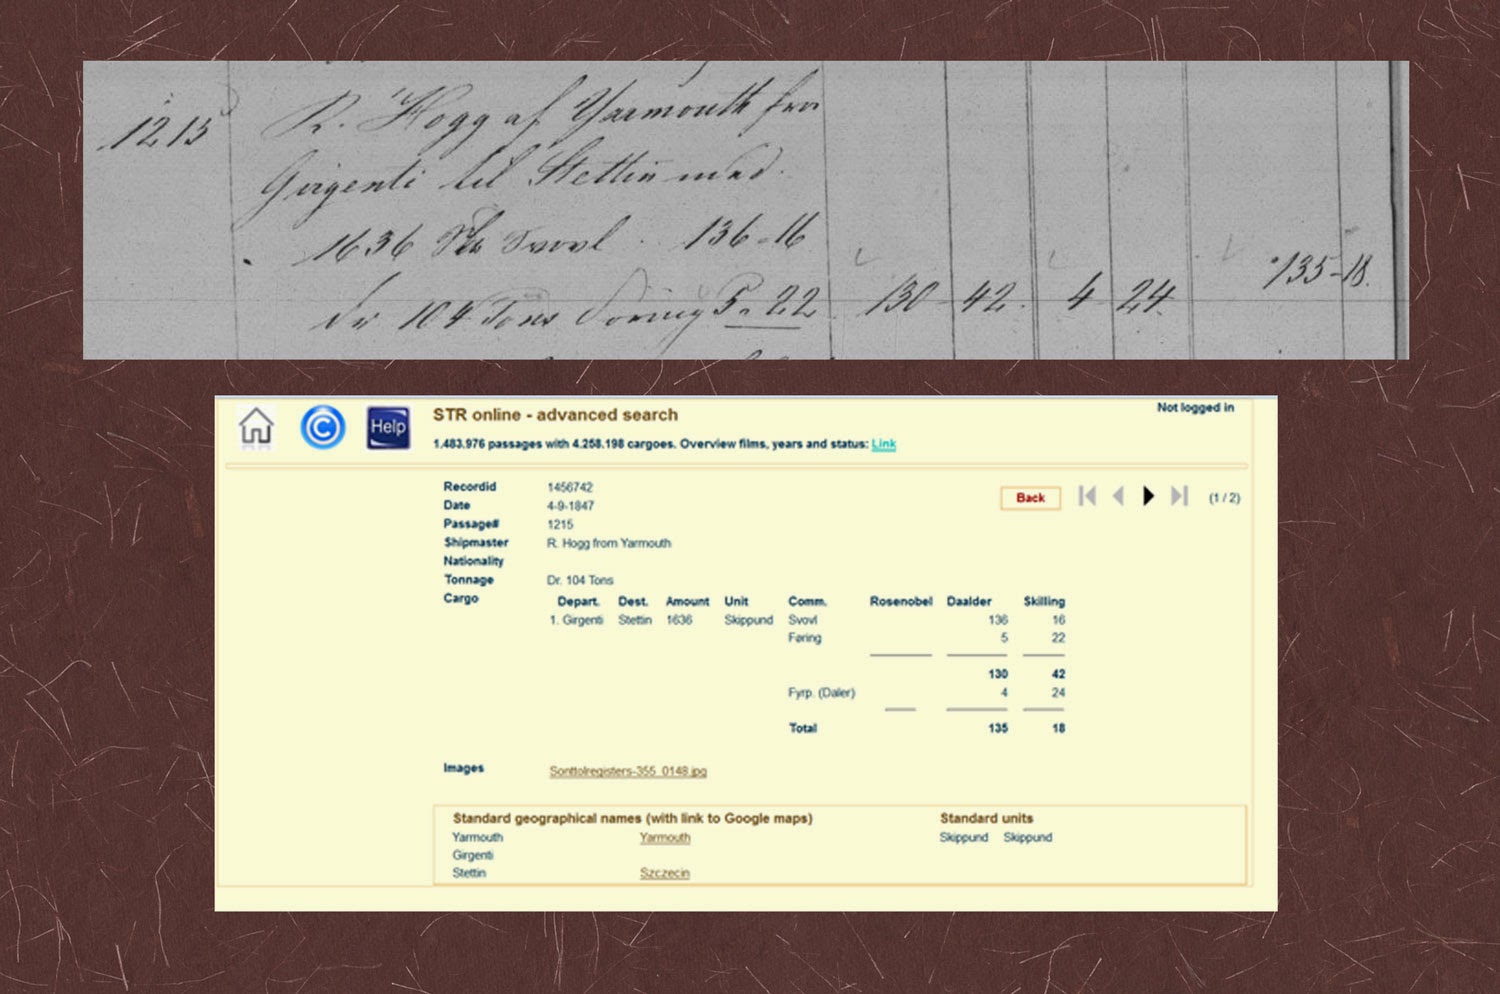 1215 R. Hogg af Yarmouth fra
Girgenti til Stettin med
1636 Svovl 136-16
Dr 104 Tons Föring 5. 22 130 42. 4 24. 135-18.
STR online - advanced search
Not logged in
1.483.976 passages with 4.258.198 cargoes. Overview films, years and status: Link
Help
Recordid 1456742
Back (1 / 2)
Date 4-9-1847
Passage# 1215
Shipmaster R. Hogg from Yarmouth
Nationality
Tonnage Dr. 104 Tons
Cargo Depart. Dest. Amount Unit Comm. Rosenobel Daalder Skilling
1. Girgenti Stettin 1636 Skippund Svovl 136 16
Føring 5 22
130 42
Fyrp. (Daler) 4 24
Total 135 18
Images Sonttolregisters-355_0148.jpg
Standard geographical names (with link to Google maps) Standard units
Yarmouth Yarmouth Skippund Skippund
Girgenti
Stettin Szczecin